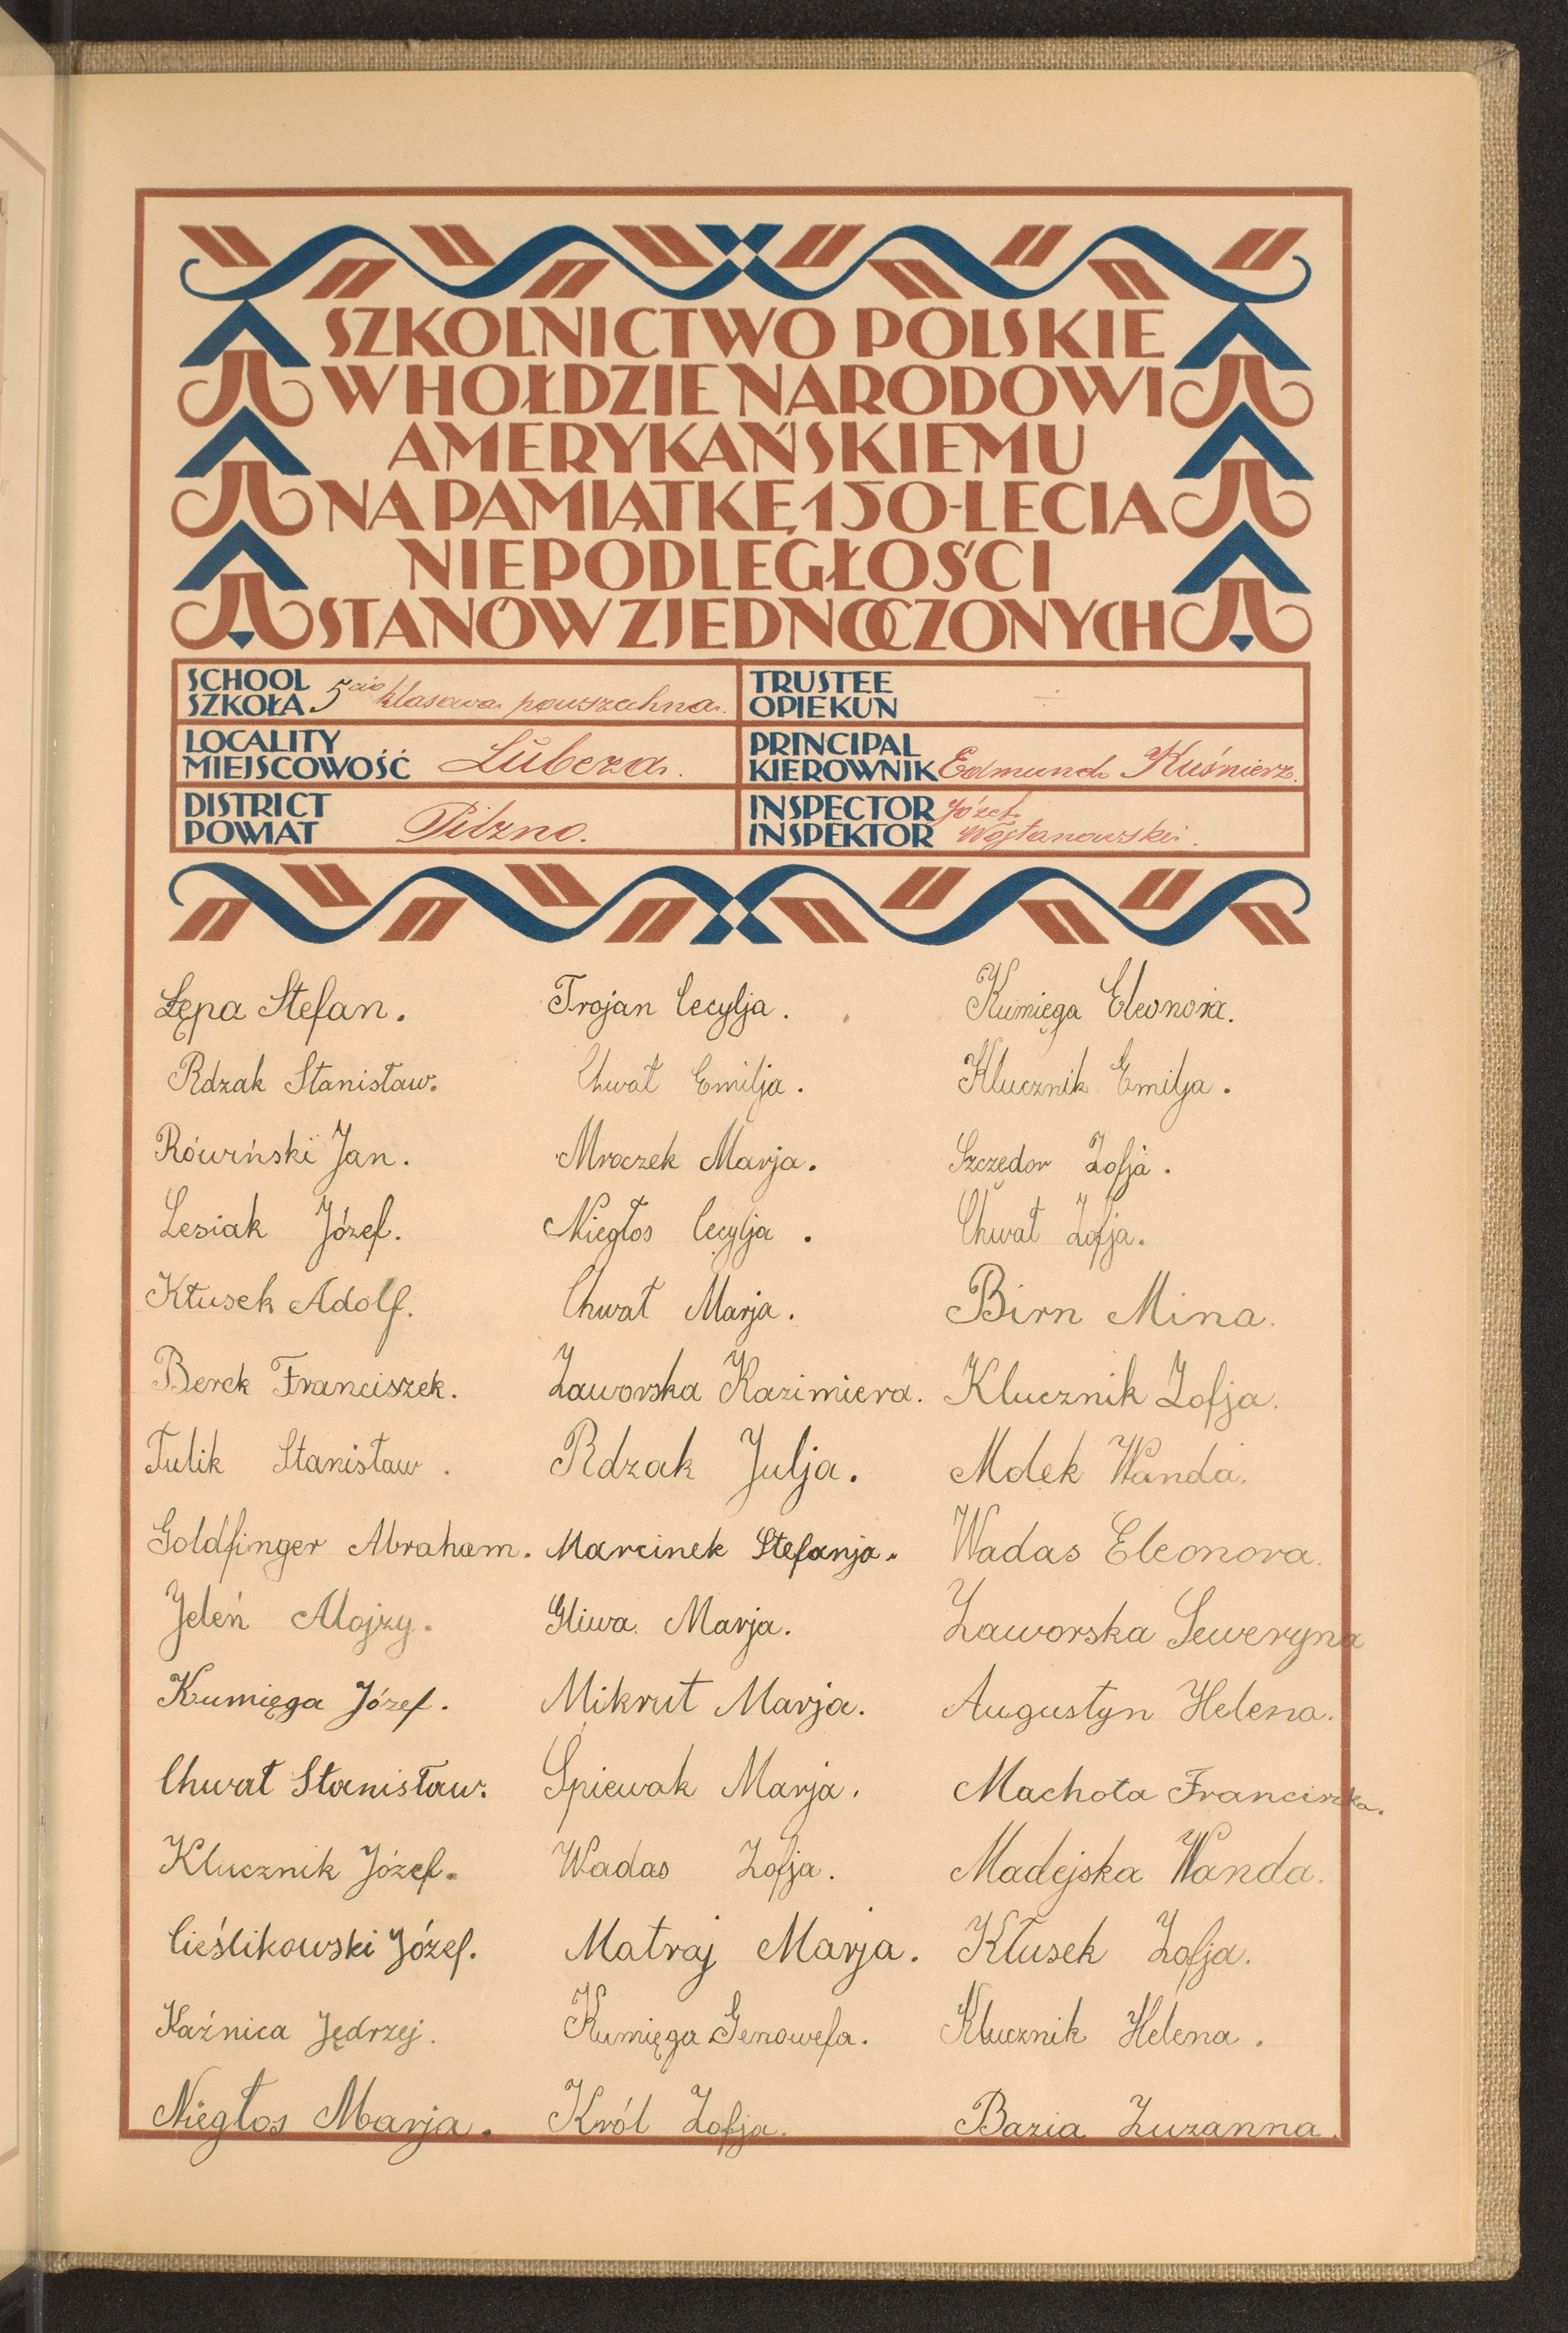 SZKOLNICTWO POLSKIE
W HOŁDZIE NARODOWI
AMERYKAŃSKIEMU
NA PAMIĄTKĘ 150-LECIA
NIEPODLEGŁOŚCI
STANÓW ZJEDNOCZONYCH
SCHOOL
SZKOŁA 5cio klasowa powszechna.
TRUSTEE
OPIEKUN
LOCALITY
MIEJSCOWOŚĆ Lubcza.
PRINCIPAL
KIEROWNIK Edmund Kuśnierz.
DISTRICT
POWIAT Pilzno.
INSPECTOR Józef
INSPEKTOR Wojtanowski.
Łępa Stefan.
Rdzak Stanisław.
Rówiński Jan.
Lesiak Józef.
Kłusek Adolf.
Berek Franciszek.
Tulik Stanisław.
Goldfinger Abraham.
Jeleń Alojzy.
Kumięga Józef.
Chwat Stanisław.
Klucznik Józef.
Cieślikowski Józef.
Kaźnica Jędrzej.
Niegłos Marja.
Trojan Cecylja.
Chwat Emilja.
Mroczek Marja.
Niegłos Cecylja.
Chwat Marja.
Zaworska Kazimiera.
Rdzak Julja.
Marcinek Stefanja.
Gliwa Marja.
Mikrut Marja.
Śpiewak Marja.
Wadas Zofja.
Matraj Marja.
Kumięga Genowefa.
Król Zofja.
Kumięga Eleonora.
Klucznik Emilja.
Szczędor Zofja.
Chwat Zofja.
Birn Mina.
Klucznik Zofja.
Molek Wanda.
Wadas Eleonora.
Zaworska Seweryna
Augustyn Helena.
Machota Franciszka.
Madejska Wanda.
Kłusek Zofja.
Klucznik Helena.
Bazia Zuzanna.